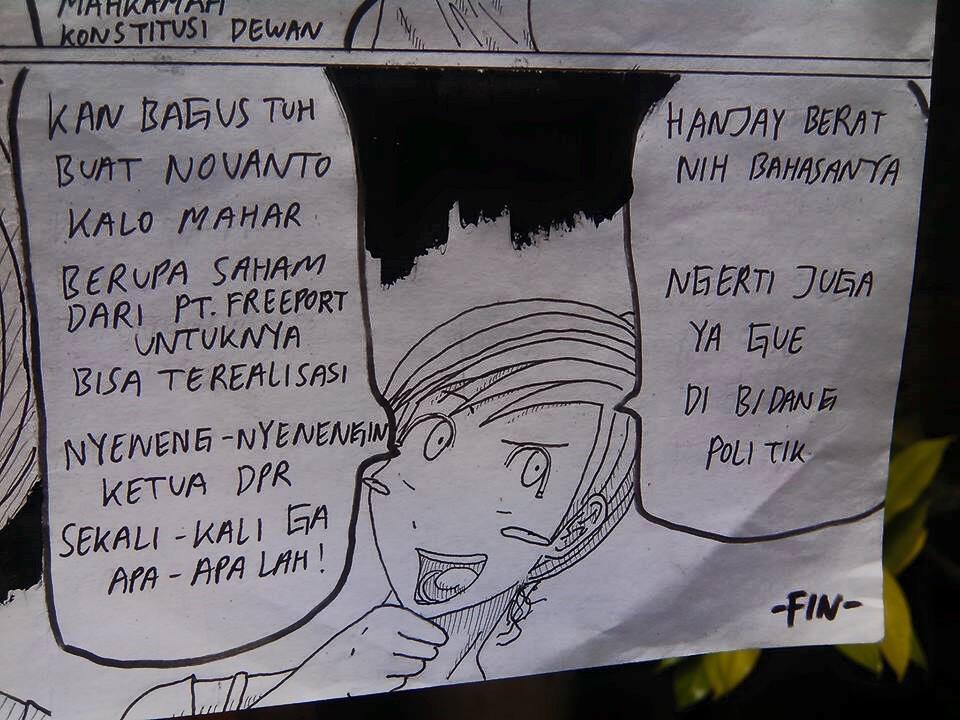 MAHKAMAH
KONSTITUSI DEWAN
KAN BAGUS TUH
BUAT NOVANTO
KALO MAHAR
BERUPA SAHAM
DARI PT. FREEPORT
UNTUKNYA
BISA TEREALISASI
NYENENG-NYENENGIN
KETUA DPR
SEKALI-KALI GA
APA-APA LAH!
HANJAY BERAT
NIH BAHASANYA
NGERTI JUGA
YA GUE
DI BIDANG
POLITIK
-FIN-